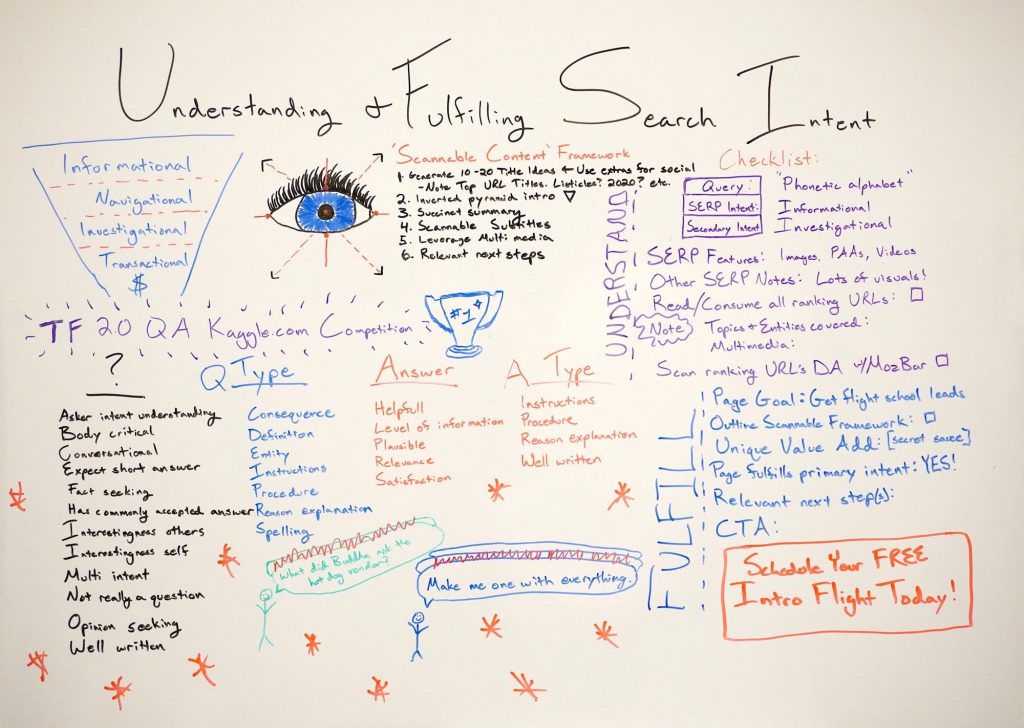 Understanding & Fulfilling Search Intent
Informational
Navigational
Investigational
Transactional
$
'Scannable Content' Framework
1. Generate 10-20 Title Ideas ← Use extras for social
- Note Top URL Titles. Listicles? 2020? etc.
2. Inverted pyramid intro ▽
3. Succinct summary
4. Scannable Subtitles
5. Leverage Multi media
6. Relevant next steps
TF 2.0 QA Kaggle.com Competition
#1
?
Asker intent understanding
Body critical
Conversational
Expect short answer
Fact seeking
Has commonly accepted answer
Interestingness others
Interestingness self
Multi intent
Not really a question
Opinion seeking
Well written
Q Type
Consequence
Definition
Entity
Instructions
Procedure
Reason explanation
Spelling
Answer
Helpfull
Level of information
Plausible
Relevance
Satisfaction
A Type
Instructions
Procedure
Reason explanation
Well written
What did Buddha ask the
hot dog vendor?
Make me one with everything.
Checklist:
UNDERSTAND
Query: "Phonetic alphabet"
SERP Intent: Informational
Secondary Intent Investigational
SERP Features: Images, PAAs, Videos
Other SERP Notes: Lots of visuals!
Read/Consume all ranking URLs: □
Note Topics & Entities covered:
Multimedia:
Scan ranking URL's DA w/MozBar □
FULFILL
Page Goal: Get flight school leads
Outline Scannable Framework: □
Unique Value Add: [secret sauce]
Page fulfills primary intent: YES!
Relevant next step(s):
CTA:
Schedule Your FREE
Intro Flight Today!